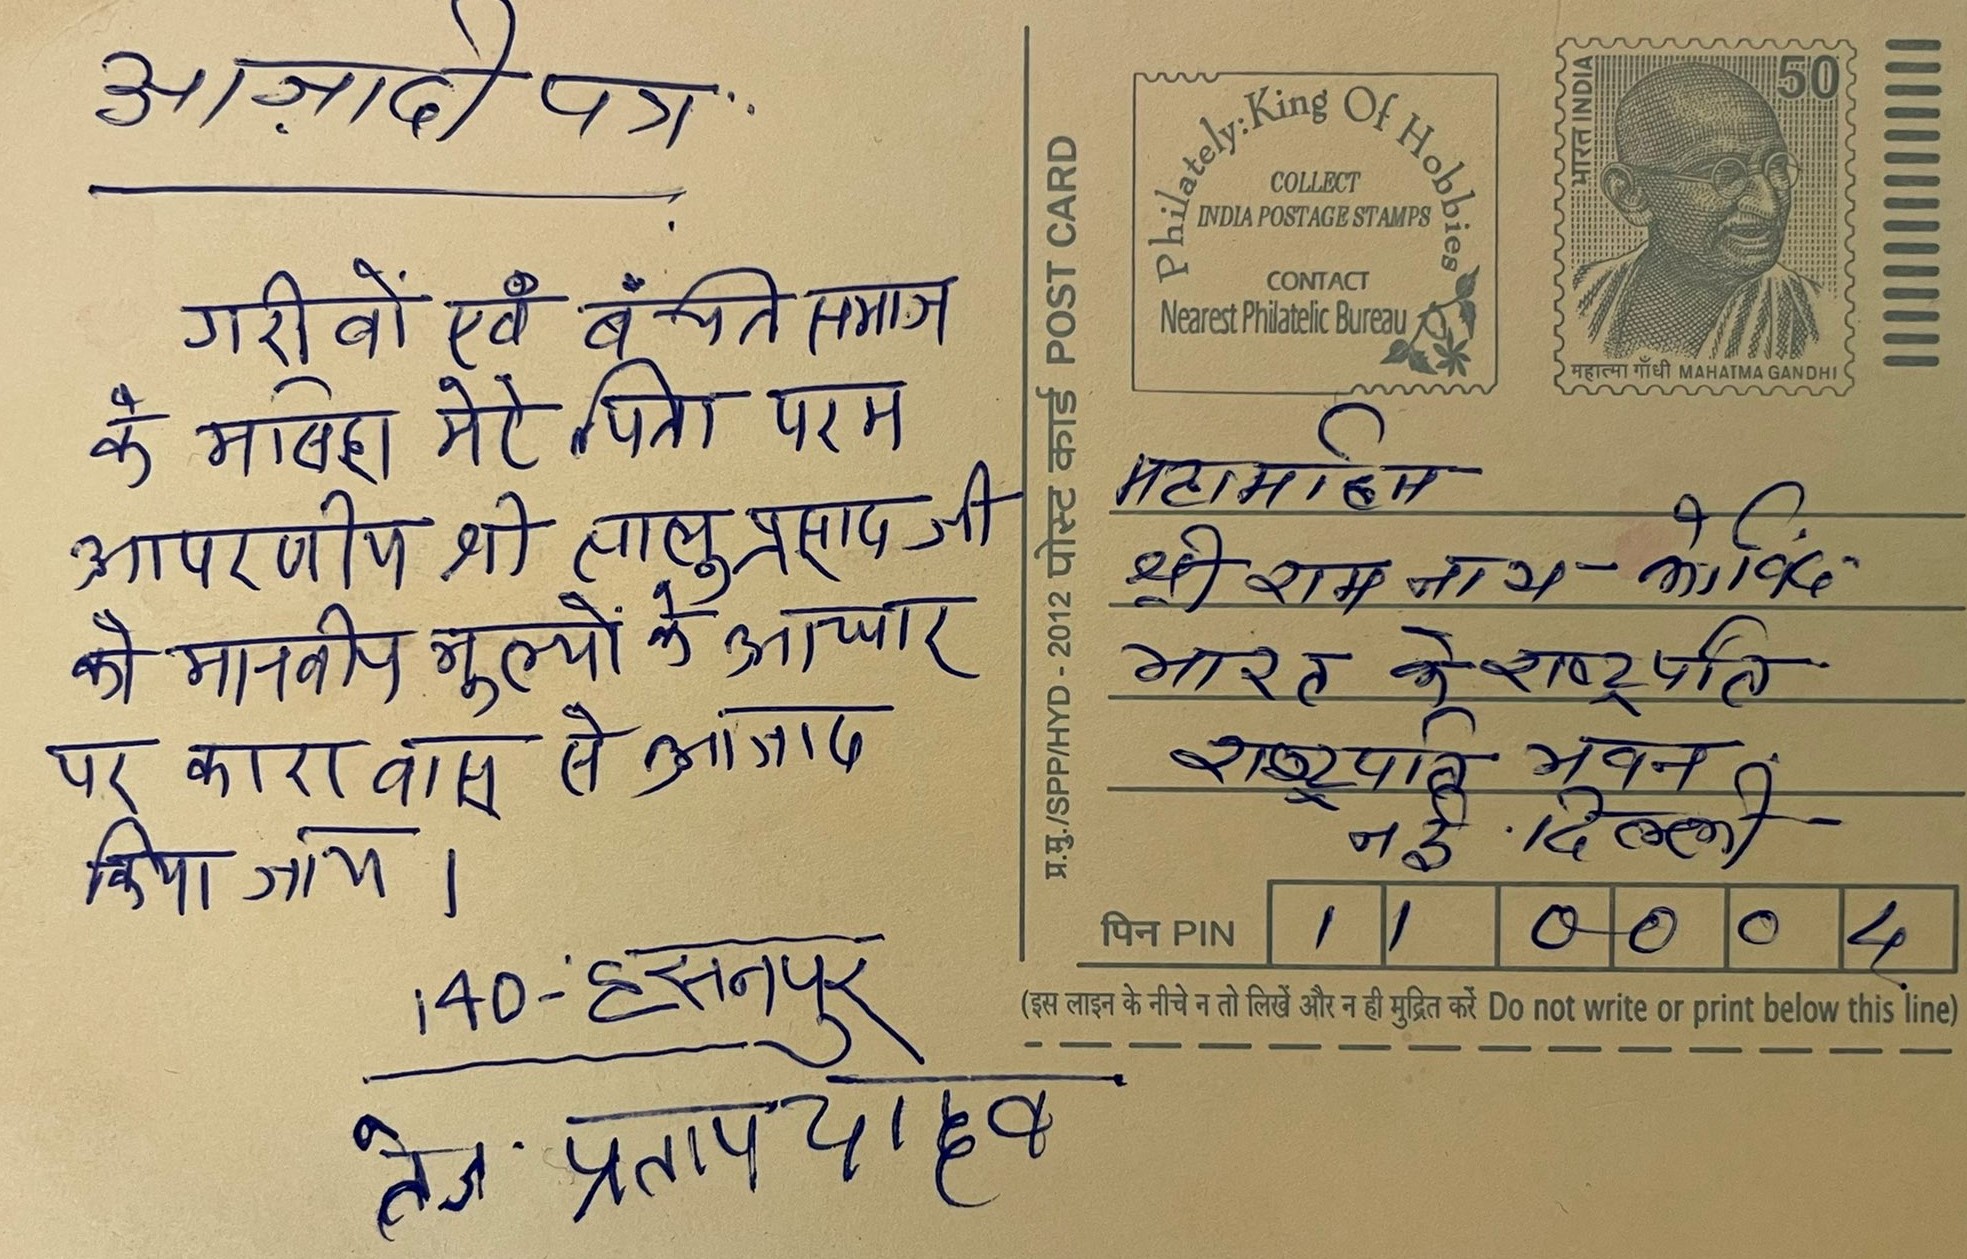 आज़ादी पत्र
गरीबों एवं बंचित समाज
के मसिहा मेरे पिता परम
आपरणीय श्री लालु प्रसाद जी
को मानवीय मुल्यों के आधार
पर कारावास से आजाद
किया जाय।
140-हसनपुर
तेज प्रताप यादव
प्र.मु./SPP/HYD - 2012 पोस्ट कार्ड POST CARD
Philately:King Of Hobbies
COLLECT
INDIA POSTAGE STAMPS
CONTACT
Nearest Philatelic Bureau
भारत INDIA
50
महात्मा गाँधी MAHATMA GANDHI
महामहिम
श्री राम नाथ - कोविंद
भारत के राष्ट्रपति
राष्ट्रपति भवन
नई दिल्ली
पिन PIN 110004
(इस लाइन के नीचे न तो लिखें और न ही मुद्रित करें Do not write or print below this line)